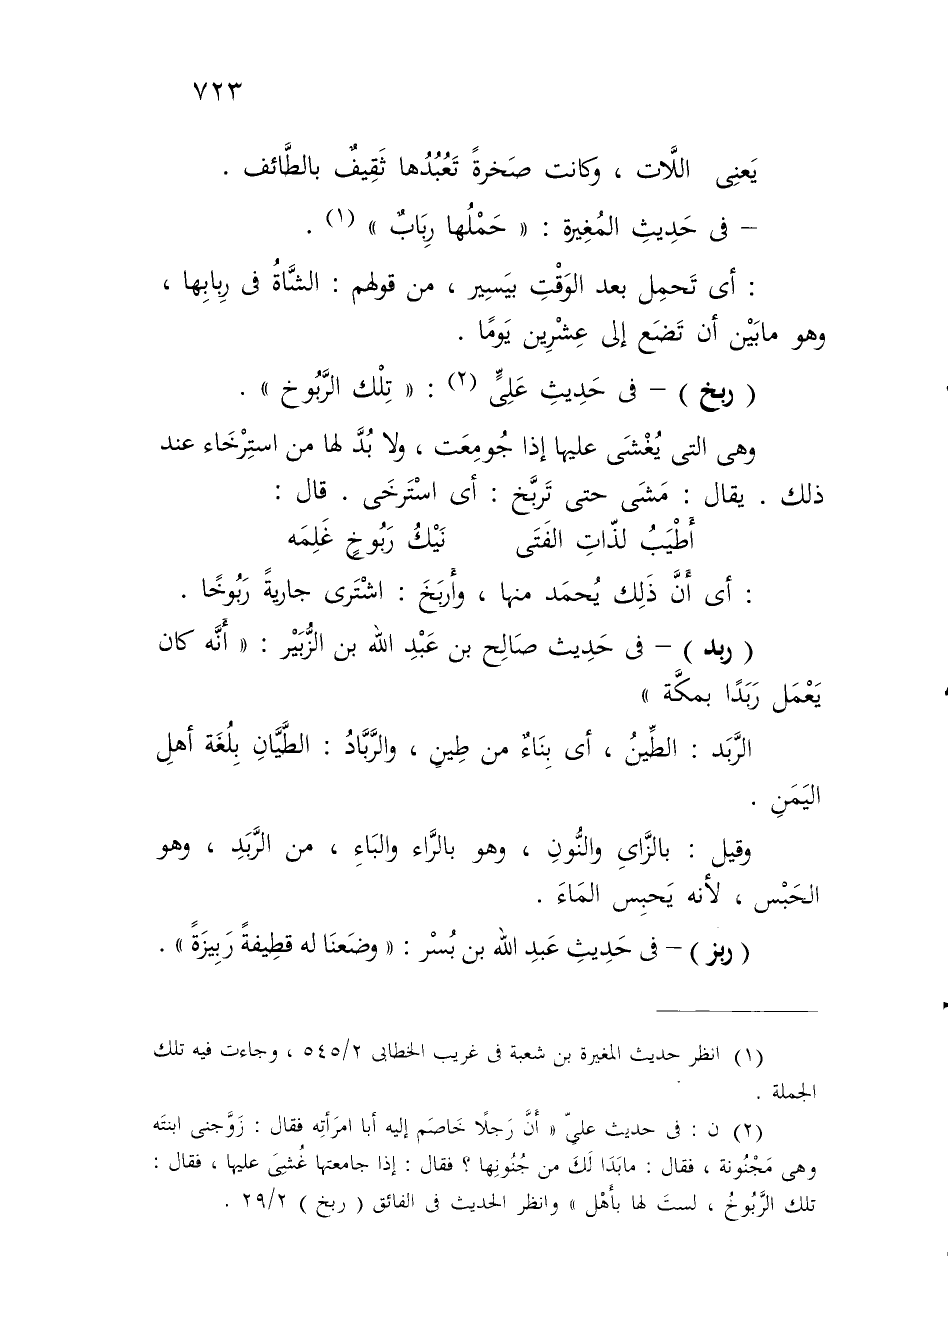 ٧٢٣
يَعنِى اللَّات ، وكانت صَخرةً تَعُبُدُها ثَقِيفٌ بالطَّائف .
– فى حَدِيثِ المُغِيرة : « حَمْلُها رِبَابٌ » (١) .
: أى تَحمِل بعد الوَقْتِ بيَسِير ، من قولهم : الشَّاةُ فى رِبابِها ،
وهو مابَيْن أن تَضَع إلى عِشْرِين يَومًا .
( ربخ ) – فى حَدِيثِ عَلِىٍّ (٢) : « تِلْك الرَّبُوخ » .
وهى التى يُغْشَى عليها إذا جُومِعَت ، ولا بُدَّ لها من استِرْخَاء عند
ذلك . يقال : مَشَى حتى تَربَّخ : أى استْرَخَى . قال :
أَطْيَبُ لذّاتِ الفَتَى نَيْكُ رَبُوخٍ غَلِمَه
: أى أَنَّ ذَلِك يُحمَد منها ، وأَربَخَ : اشْتَرى جاريةً رَبُوخًا .
( ربد ) – فى حَدِيث صَالِح بن عَبْدِ الله بن الزُّبَيْر : « أَنَّه كان
يَعْمَل رَبَدًا بمكَّة »
الرَّبَد : الطِّينُ ، أى بِنَاءٌ من طِينٍ ، والرَّبَّادُ : الطَّيَّانِ بِلُغَة أهلِ
اليَمَنِ .
وقيل : بالزَّاىِ والنُّونِ ، وهو بالرَّاء والبَاءِ ، من الرَّبَدِ ، وهو
الحَبْس ، لأنه يَحبِس المَاءَ .
( ربز ) – فى حَدِيثِ عَبدِ الله بن بُسْر : « وضَعنَا له قطِيفةً رَبِيزَةً » .
(١) انظر حديث المغيرة بن شعبة فى غريب الخطابى ٥٤٥/٢ ، وجاءت فيه تلك
الجملة .
(٢) ن : فى حديث علىّ « أَنَّ رَجلًا خَاصَم إليه أبا امرَأتِه فقال : زَوَّجنى ابنتَه
وهى مَجْنُونة ، فقال : مابَدَا لَكَ من جُنُونِها ؟ فقال : إذا جامعتها غُشىَ عليها ، فقال :
تلك الرَّبُوخُ ، لستَ لها بأَهْل » وانظر الحديث فى الفائق ( ربخ ) ٢٩/٢ .